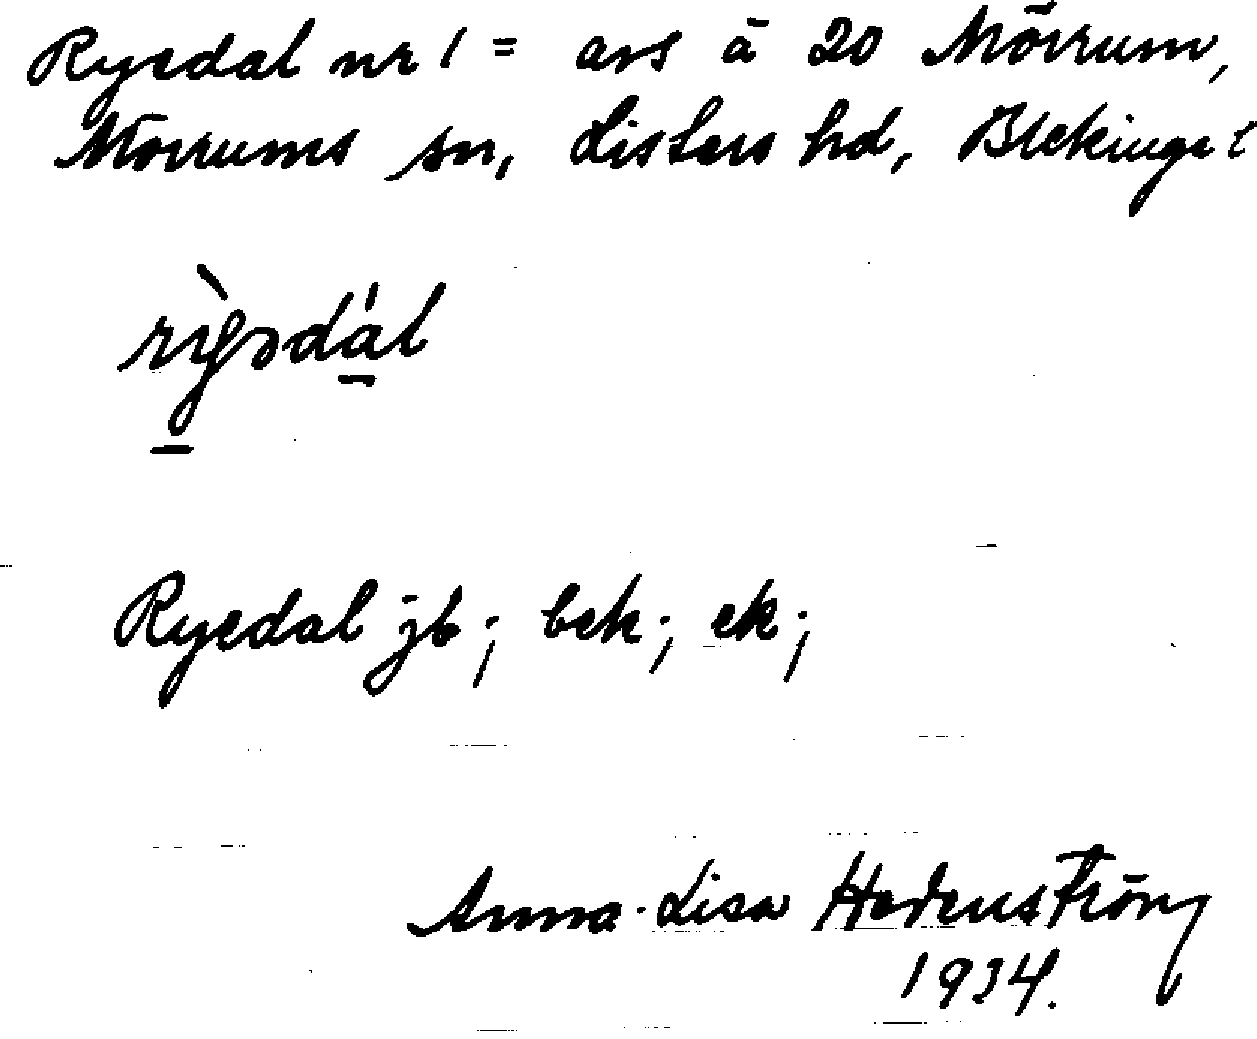 Ryedal nr 1 = avs å 20 Mörrum,
Mörrums sn, Listers hd, Blekinge l
Ryedal jb; bek; ek;
Anna-Lisa Hedenström
1934.